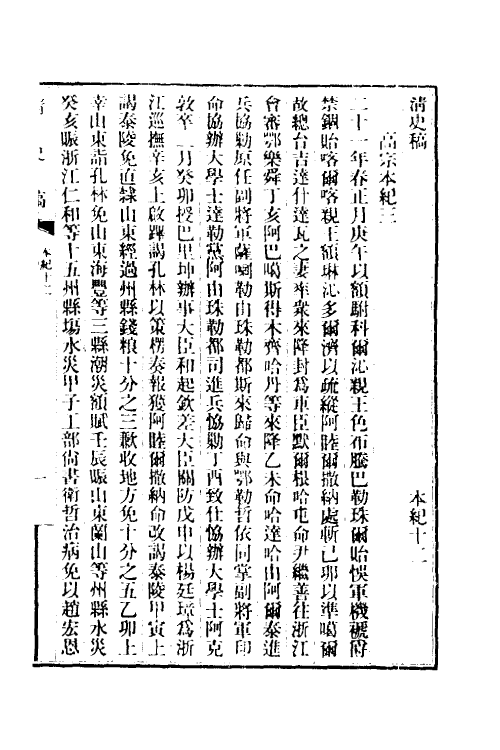 清史稿 本紀十二
高宗本紀三
二十一年春正月庚午以額駙科爾沁親王色布騰巴勒珠爾貽悞軍機褫爵
禁錮喀爾喀親王額琳沁多爾濟以疏縱阿睦爾撒納處斬己卯以準噶爾
故總台吉達什達瓦之妻率衆來降封爲車臣默爾根哈屯命尹繼善往浙江
會審鄂樂舜丁亥阿巴噶斯得木齊哈丹等來降乙未命哈達哈由阿爾泰進
兵協勦原任副將軍薩喇勒由珠勒都斯來歸命與鄂勒哲依同掌副將軍印
命協辦大學士達勒黨阿由珠勒都司進兵協勦丁酉致仕協辦大學士阿克
敦卒二月癸卯授巴里坤辦事大臣和起欽差大臣關防戊申以楊廷璋爲浙
江巡撫辛亥上啟蹕謁孔林以策楞奏報獲阿睦爾撒納命改謁泰陵甲寅上
謁泰陵免直隸山東經過州縣錢糧十分之三歉收地方免十分之五乙卯上
幸山東詣孔林免山東海豐等三縣潮災額賦壬辰賑山東蘭山等州縣水災
癸亥賑浙江仁和等十五州縣場水災甲子工部尚書衛哲治病免以趙宏恩
清史稿 本紀十二 一